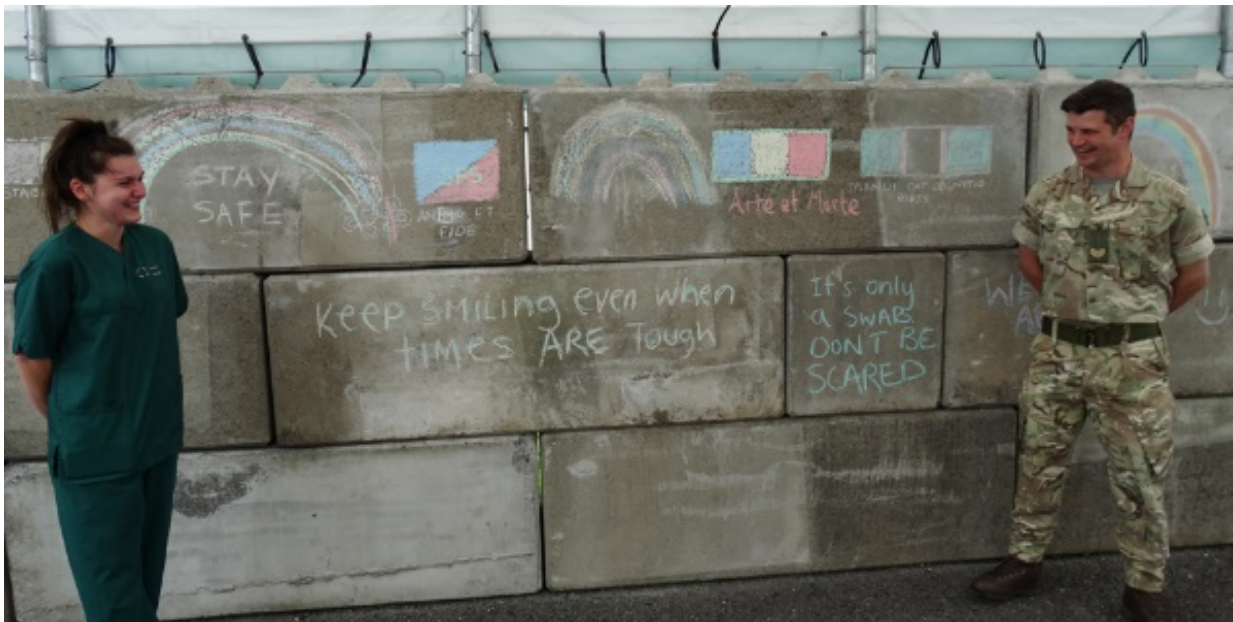 STAY
SAFE
ET
FIDE
Arte et Marte
Keep SMILING even when
times ARE Tough
It's only
a SWAB.
DON'T BE
SCARED
WE